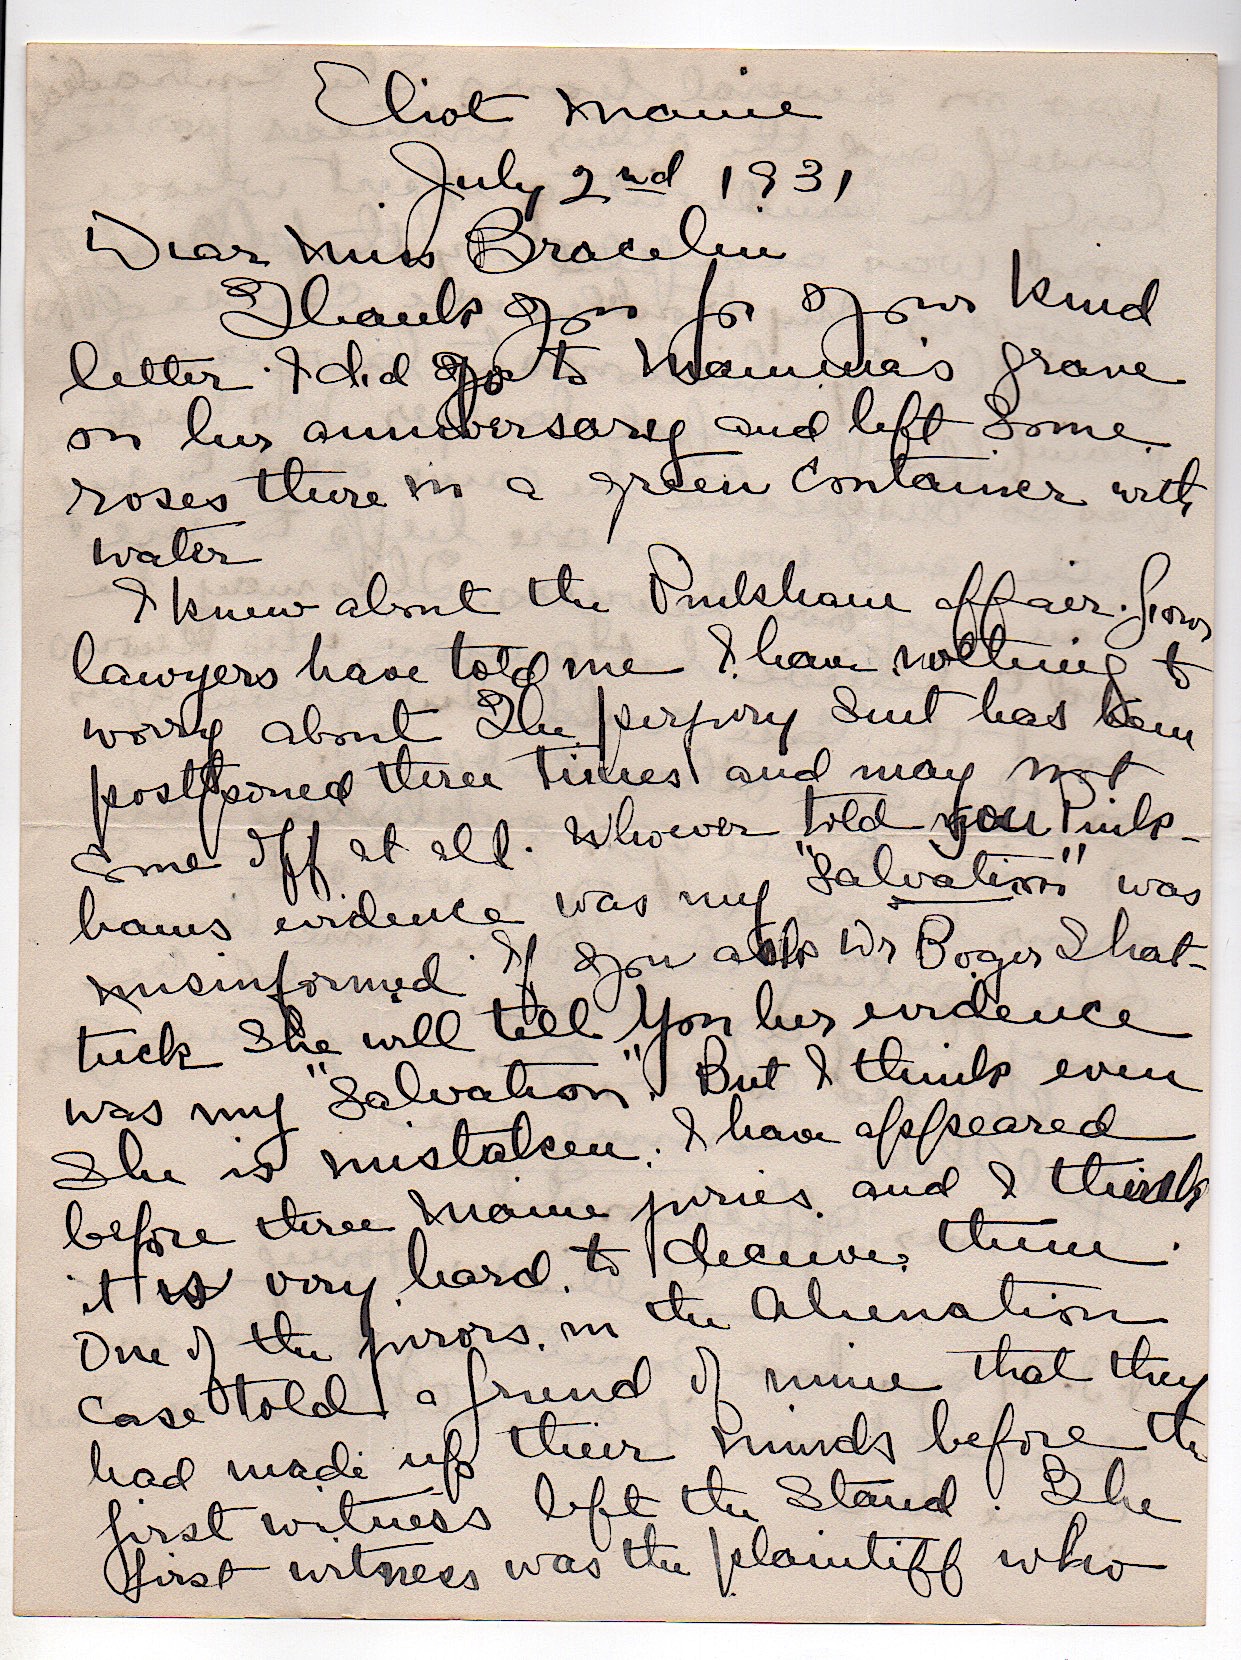 Eliot Maine
July 2nd 1931
Dear Miss Bracelin
Thank you for your kind
letter. I did go to Mamma's grave
on her anniversary and left some
roses there in a green container with
water
I knew about the Pinkham affair. Your
lawyers have told me I have nothing to
worry about The perjury suit has been
postponed three times and may not
come off at all. Whoever told you Pink-
hams evidence was my "Salvation" was
misinformed. If you ask Dr Boger Shat-
tuck she will tell you her evidence
was my "Salvation". But I think even
she is mistaken. I have appeared
before three Maine juries. and I think
it is very hard. to deceive them.
One of the jurors. in the Alienation
Case told a friend of mine that they
had made up their minds before the
first witness left the stand. The
first witness was the plaintiff who